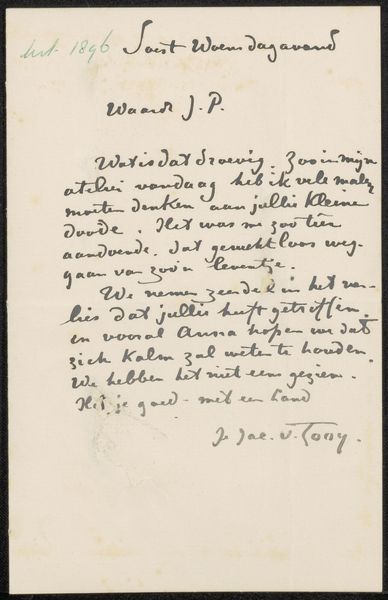 1896 Soest Woensdagavond
Waarde J.P.
Wat is dat droevig. Zoo in mijn
atelier vandaag heb ik vele malen
moeten denken aan jullie kleine
doode. Het was me zoo téér
aandoende, dat gerucht loos weg-
gaan van zoo'n leventje.
We nemen zeer deel in het ver-
lies dat jullie heeft getroffen
en vooral Anna hopen we dat
zich kalm zal weten te houden.
We hebben het niet eens gezien.
Heb je goed - met een hand
Je Jac. v. Looy.